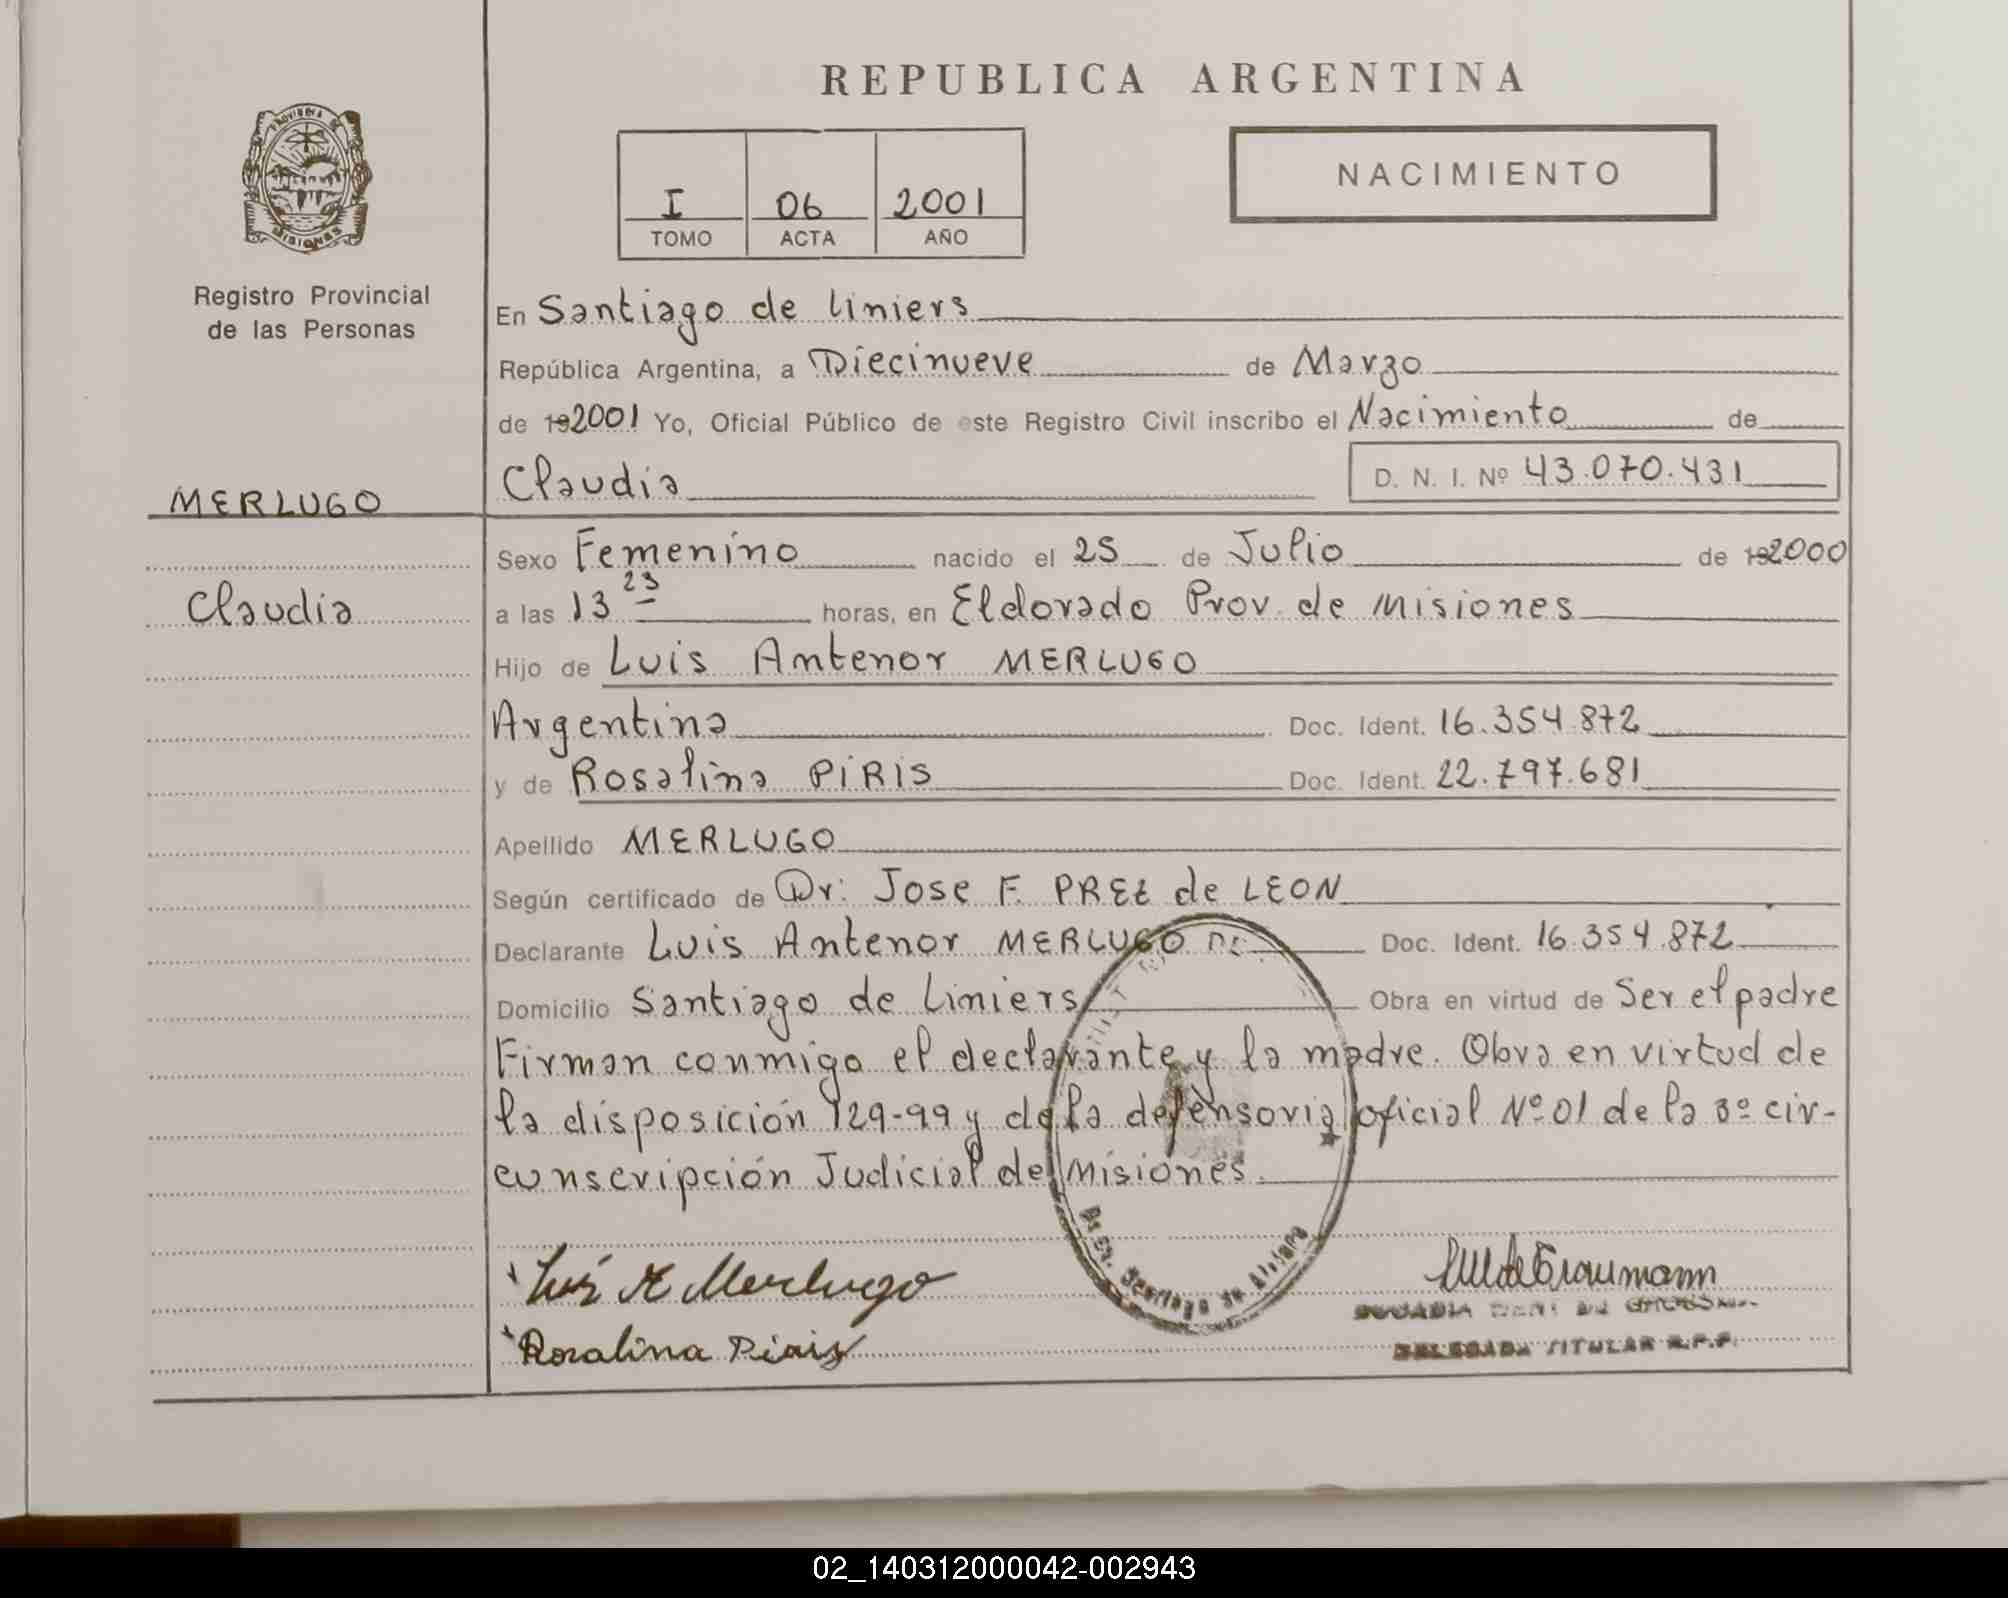 REPUBLICA ARGENTINA
PROVINCIA DE
MISIONES
Registro Provincial
de las Personas
I 06 2001
TOMO ACTA AÑO
NACIMIENTO
En Santiago de Liniers
República Argentina, a Diecinueve de Marzo
de 192001 Yo, Oficial Público de este Registro Civil inscribo el Nacimiento de
MERLUGO
Claudia D. N. I. Nº 43.070.431
Sexo Femenino nacido el 25 de Julio de 192000
Claudia
a las 13 23 horas, en Eldorado Prov. de Misiones
Hijo de Luis Antenor MERLUGO
Argentina Doc. Ident. 16.354.872
y de Rosalina PIRIS Doc. Ident. 22.797.681
Apellido MERLUGO
Según certificado de Dr: Jose F. PREZ de LEON
Declarante Luis Antenor MERLUGO Doc. Ident. 16.354.872
Domicilio Santiago de Liniers Obra en virtud de Ser el padre
Firman conmigo el declarante y la madre. Obra en virtud de
la disposición 129-99 y de la defensoria oficial Nº 01 de la 3º cir-
cunscripción Judicial de Misiones.
Luis A Merlugo
Rosalina Piris
DELEGADA TITULAR R.P.P.
02_140312000042-002943